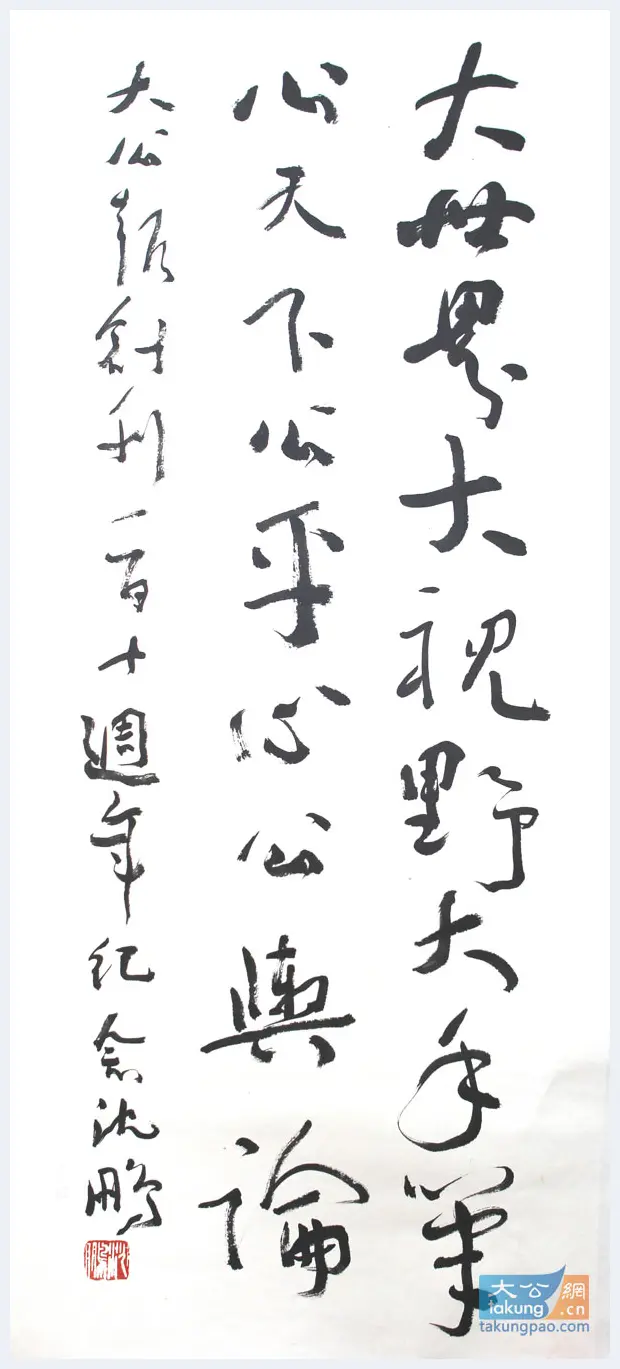 大世界大視野大手筆
心天下公平心公輿論
大公報創刊一百十週年紀念沈鵬
沈鵬
大公網
takung.cn
takungpao.com